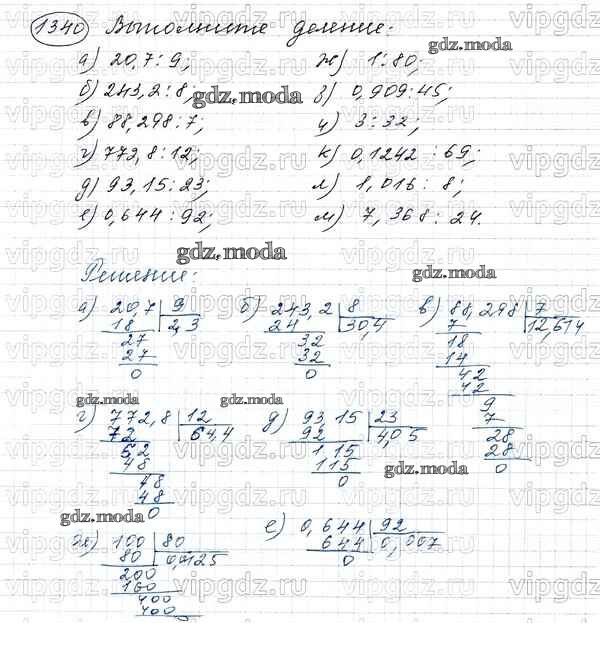 1340 Выполните деление:
а) 20,7 : 9; ж) 1 : 80;
б) 243,2 : 8; з) 0,909 : 45;
в) 88,298 : 7; и) 3 : 32;
г) 773,8 : 12; к) 0,1242 : 69;
д) 93,15 : 23; л) 1,016 : 8;
е) 0,644 : 92; м) 7,368 : 24.
gdz.moda
gdz.moda
gdz.moda
Решение:
gdz.moda
а) 20,7 | 9 б) 243,2 | 8 в) 88,298 | 7
18 2,3 24 30,4 7 12,614
27 32 18
27 32 14
0 0 42
42
gdz.moda gdz.moda 9
г) 772,8 | 12 д) 93,15 | 23 7
72 64,4 92 4,05 28
52 1,15 28
48 115 0
48 0 gdz.moda
48
0
gdz.moda
е) 0,644 | 92
ж) 100 | 80 644 0,007
80 0,0125 0
200
160
400
400
vipgdz.ru